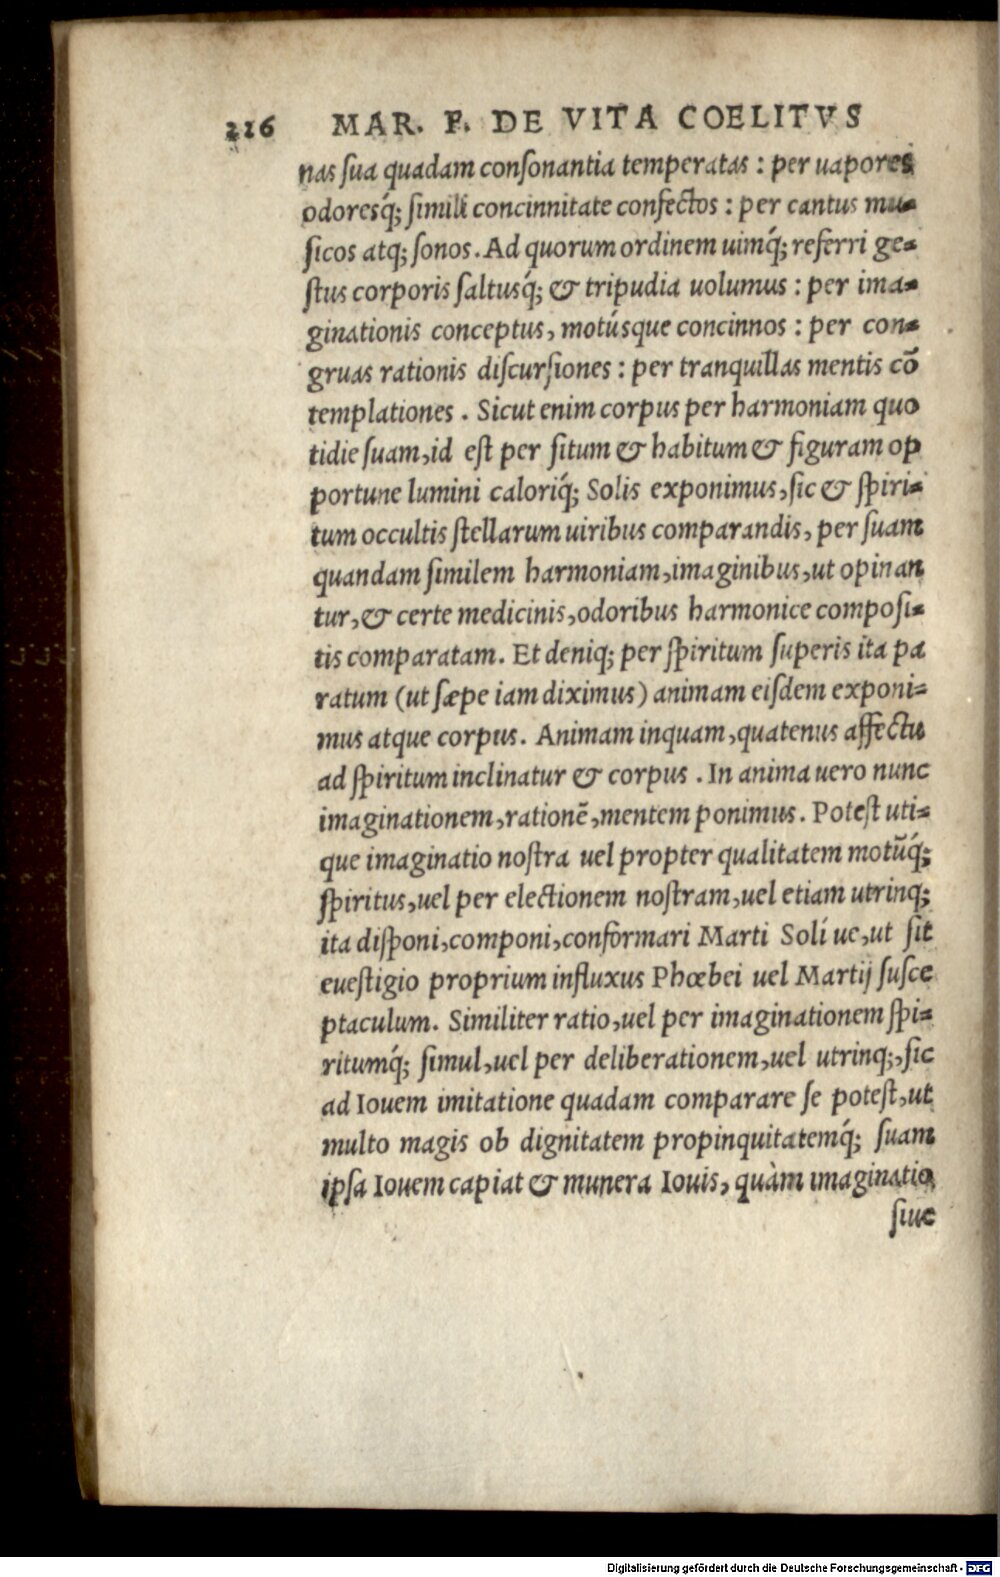 216 MAR. F. DE VITA COELITVS
nas ſua quadam conſonantia temperatas : per uapores
odoresq́; ſimili concinnitate confectos : per cantus mu-
ſicos atq; ſonos. Ad quorum ordinem uimq́; referri ge-
ſtus corporis ſaltusq́; & tripudia uolumus : per ima-
ginationis conceptus, motúsque concinnos : per con-
gruas rationis diſcurſiones : per tranquillas mentis cō
templationes. Sicut enim corpus per harmoniam quo
tidie ſuam, id est per ſitum & habitum & figuram op
portune lumini caloriq́; Solis exponimus, ſic & ſpiri-
tum occultis ſtellarum uiribus comparandis, per ſuam
quandam ſimilem harmoniam, imaginibus, ut opinan
tur, & certe medicinis, odoribus harmonice compoſi-
tis comparatam. Et deniq; per ſpiritum ſuperis ita pa
ratum (ut ſæpe iam diximus) animam eiſdem exponi-
mus atque corpus. Animam inquam, quatenus affectu
ad ſpiritum inclinatur & corpus. In anima uero nunc
imaginationem, rationē, mentem ponimus. Poteſt uti-
que imaginatio noſtra uel propter qualitatem motūq́;
ſpiritus, uel per electionem noſtram, uel etiam utrinq;
ita diſponi, componi, conformari Marti Soli ue, ut ſit
eueſtigio proprium influxus Phœbei uel Martij ſuſce
ptaculum. Similiter ratio, uel per imaginationem ſpi-
ritumq́; ſimul, uel per deliberationem, uel utrinq;, ſic
ad Iouem imitatione quadam comparare ſe poteſt, ut
multo magis ob dignitatem propinquitatemq́; ſuam
ipſa Iouem capiat & munera Iouis, quàm imaginatio
ſiue
Digitalisierung gefördert durch die Deutsche Forschungsgemeinschaft - DFG